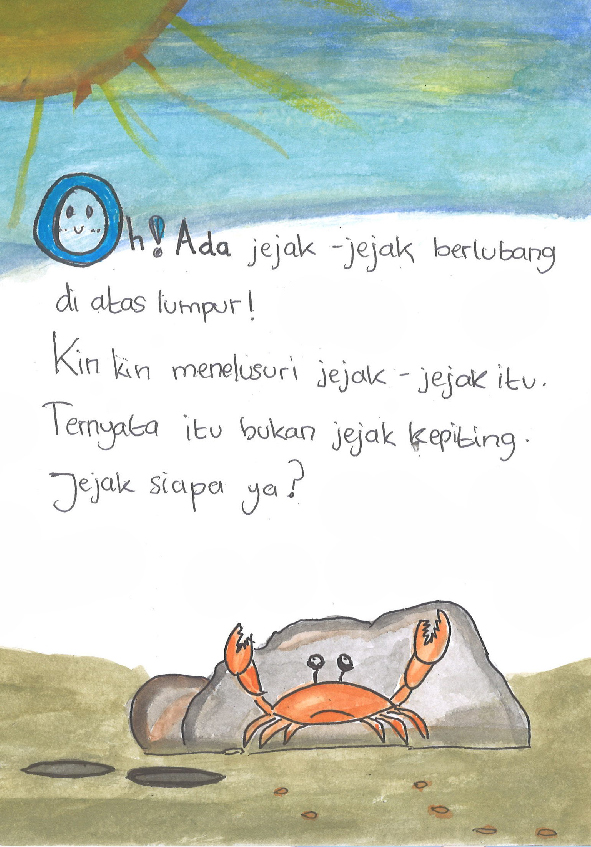 Oh! Ada jejak-jejak berlubang
di atas lumpur!
Kin kin menelusuri jejak-jejak itu.
Ternyata itu bukan jejak kepiting.
Jejak siapa ya?